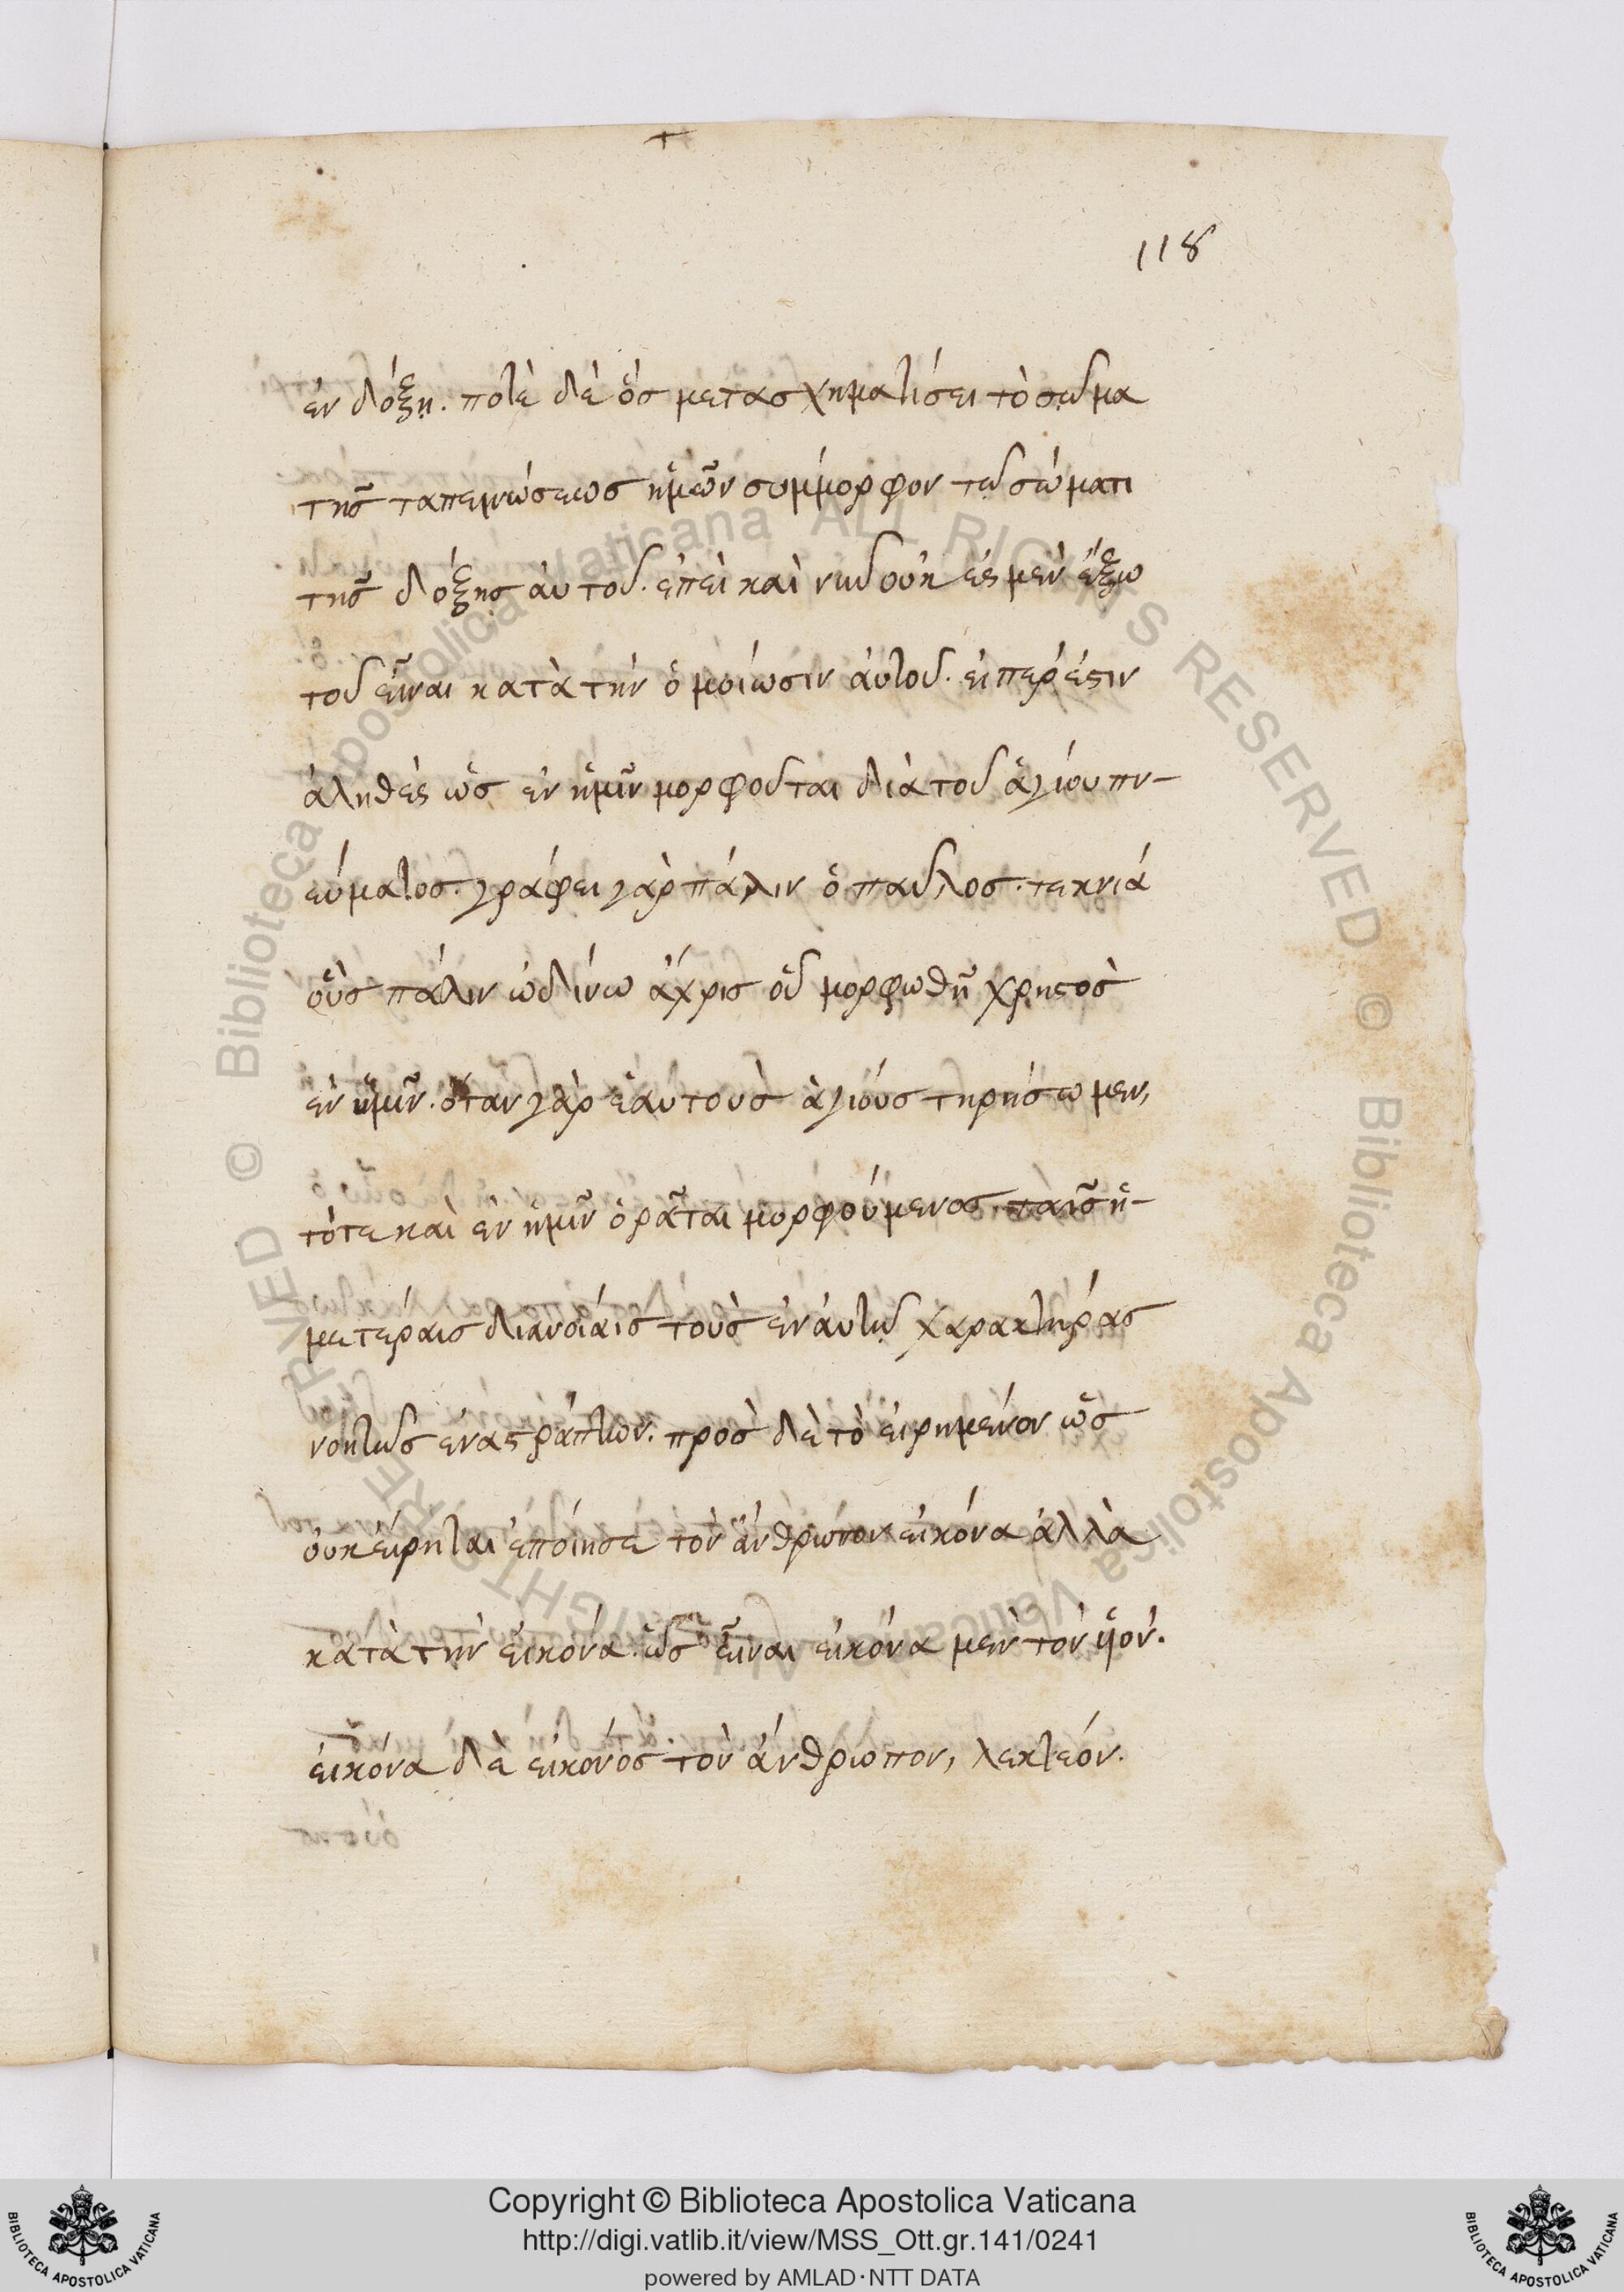 118
ἐν δόξῃ. ποτὲ δὲ ὃς μετασχηματίσει τὸ σῶμα
τῆς ταπεινώσεως ἡμῶν συμμορφον τῷ σώματι
τῆς δόξης ἀυτοῦ. ἐπεὶ καὶ νῦν οὐκ ἐσμὲν ἔξω
τοῦ εἶναι κατὰ τὴν ὁμοίωσιν ἀυτοῦ. εἰπερ ἐστιν
ἀληθὲς ὡς ἐν ἡμῖν μορφοῦται διὰ τοῦ ἁγίου πν-
εύματος. γράφει γὰρ πάλιν ὁ παῦλος. τεκνιά
οὓς πάλιν ὠδίνω ἄχρις οὗ μορφωθῇ χρηστὸς
ἐν ἡμῖν. ὅταν γὰρ ἑαυτοὺς ἁγιόυς τηρήσωμεν,
τότε καὶ ἐν ἡμῖν ὁρᾶται μορφούμενος, ταῖς ἡ-
μετέραις διανοίαις τοὺς ἐν ἀυτῷ χαρακτηράς
νοητῶς ἐναστράπτων. πρὸς δὲ τὸ εἰρημένον ὡς
οὐκ εἴρηται ἐποίησε τὸν ἄνθρωπον εἰκόνα ἀλλὰ
κατὰ τὴν εἰκόνα. ὡς εἶναι εἰκόνα μὲν τὸν ὑιόν.
εἰκόνα δὲ εἰκόνος τὸν ἄνθρωπον, λεκτέον.
Copyright © Biblioteca Apostolica Vaticana
http://digi.vatlib.it/view/MSS_Ott.gr.141/0241
powered by AMLAD·NTT DATA
BIBLIOTECA APOSTOLICA VATICANA
BIBLIOTECA APOSTOLICA VATICANA
© Biblioteca Apostolica Vaticana ALL RIGHTS RESERVED © Biblioteca Apostolica Vaticana ALL RIGHTS RESERVED